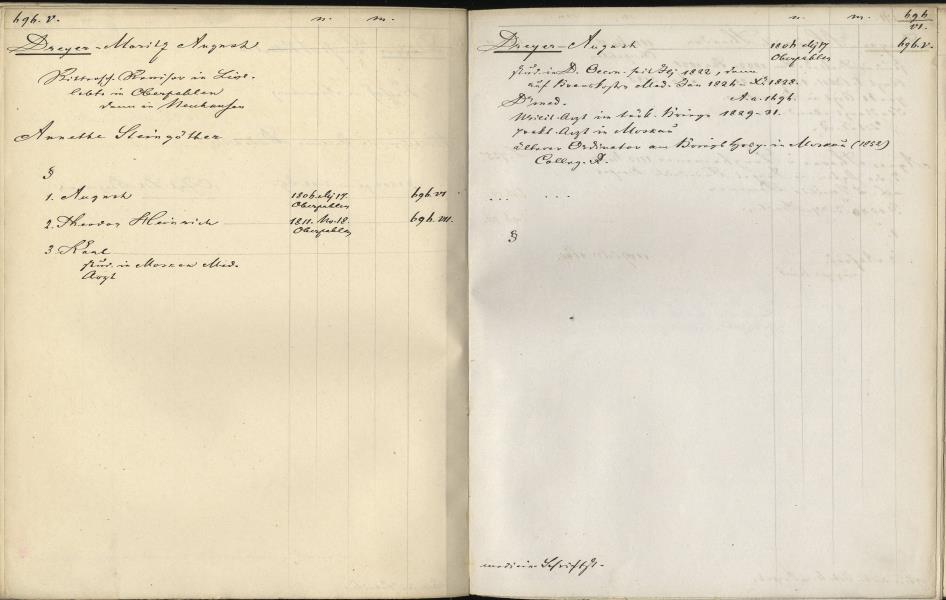 hgh. V. n. m.
Dreyer-Moritz August
Rittersch. Revisor in Livl.
lebte in Oberpahlen
dann in Neuhausen
Annethe Steingötter
§
1. August 1806 Mz 17. hgh. VI
Oberpahlen
2. Theodor Heinrich 1811. No. 18. hgh. VII.
Oberpahlen
3 Karl
stud. in Moscau Med.
Arzt
n. m. hgh
VI.
Dreyer-August 1806 17 hgh. V.
Oberpahlen
stud. in D. Oecon. seit 1822, dann
auf Kronskosten Med. Jan 1824 - 1828.
Dr med. A. a. 1696.
Milit. Arzt in türk. Kriege 1829-31.
prakt. Arzt in Moskau
älterer Ordinator am in Moskau (1852)
Colleg. A.
... ...
§
medicin. Schriftst.